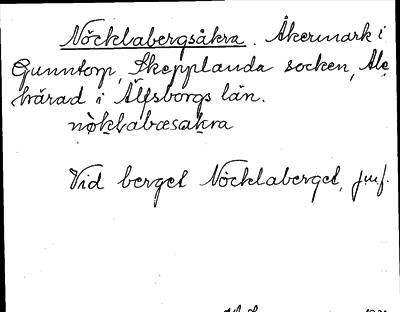 Nöcklabergsåkra. Åkermark i
Gunntorp, Skepplanda socken, Ale
härad i Älfsborgs län.
nø̀klabæsakra
Vid berget Nöcklaberget, jmf.